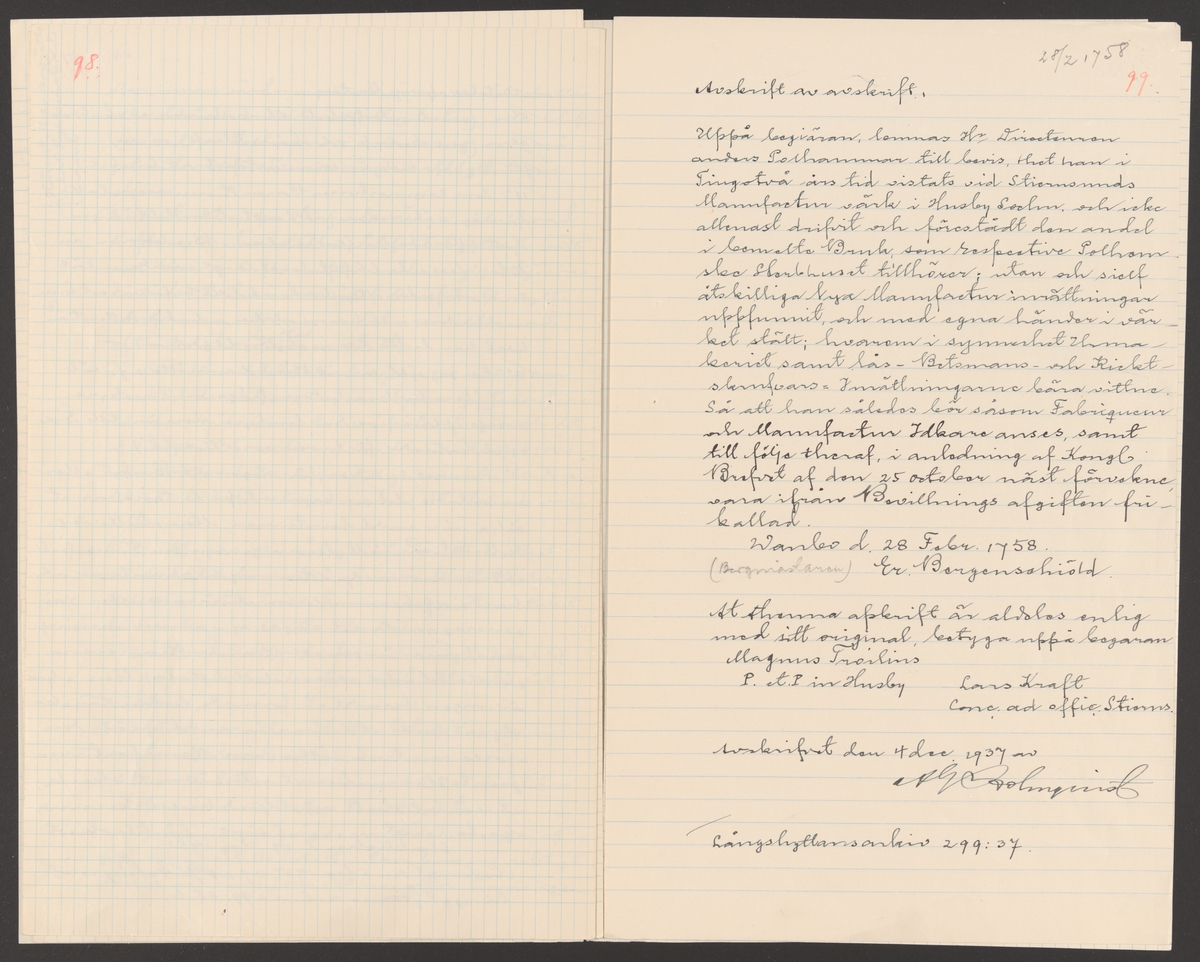 98.
28/2 1758
99.
Avskrift av avskrift.
Uppå begiäran, lemnas Hr Directeuren
anders Polhammar till bevis, thet han i
Tiugotvå års tid vistats vid Stiernsunds
Manufactur värk i Husby Sochn. och icke
allenast drifvit och förestådt den andel
i bemelte Bruk, som respective Polhem-
ske Sterbhuset tillhörer; utan och sielf
åtskilliga Nya Manufactur inrättningar
uppfunnit, och med egna händer i vär-
ket stält; hvarom i synnerhet Urma-
keriet samt lås- Betsmans- och
Inrättningarne bära vittne.
Så att han således bör såsom Fabriqueur
och Manufactur Idkare anses, samt
till följe theraf, i anledning af Kongl.
Brefvet af den 25 october näst förvekne,
vara ifrån Bevillnings afgiften fri-
kallad.
Wanbo d. 28 Febr. 1758.
(Bergmästaren) Er. Bergenschiöld.
At thenna afskrift är aldeles enlig
med sitt original, betyga uppå begäran
Magnus Troilius
P. et. P in Husby Lars Kraft
Conc. ad offic. Stierns.
Avskrifvet den 4 dec. 1937 av
Holmqvist
Långshyttans arkiv 299:37.